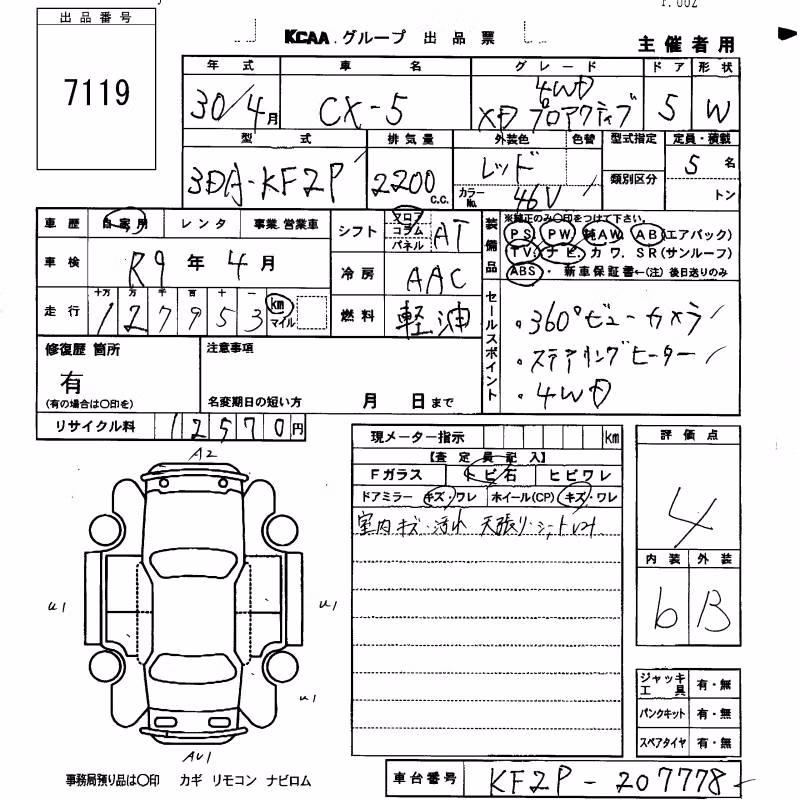 P. 002
出品番号
7119
KCAA グループ 出品票
主催者用
年式 車名 グレード ドア 形状
30/4月 CX-5 4WD XD プロアクティブ 5 W
型式 排気量 外装色 色替 型式指定 定員・積載
3DA-KF2P 2200 c.c. レッド 5名
類別区分
カラーNo. 46V トン
車歴 自家用 レンタ 事業・営業車
シフト フロア コラム パネル AT
装備品 ※純正のみ〇印をつけて下さい。
PS PW 純AW AB(エアバック)
TV ナビ カワ SR(サンルーフ)
ABS・新車保証書←(注)後日送りのみ
車検 R9年4月
冷房 AAC
走行 十万 万 千 百 十 一
127953 km マイル
燃料 軽油
セールスポイント
・360°ビューカメラ
・ステアリングヒーター
・4WD
修復歴 箇所
有
(有の場合は〇印を)
注意事項
名変期日の短い方 月 日まで
リサイクル料 12570円
現メーター指示 km
【査定員記入】
Fガラス トビ石 ヒビワレ
ドアミラー キズ・ワレ ホイール(CP) キズ・ワレ
室内キズ・汚れ 天張り・シート
評価点
4
内装 外装
6 B
A2
u1
u1
u1
AU1
ジャッキ工具 有・無
パンクキット 有・無
スペアタイヤ 有・無
事務局預り品は〇印 カギ リモコン ナビロム
車台番号 KF2P-207778